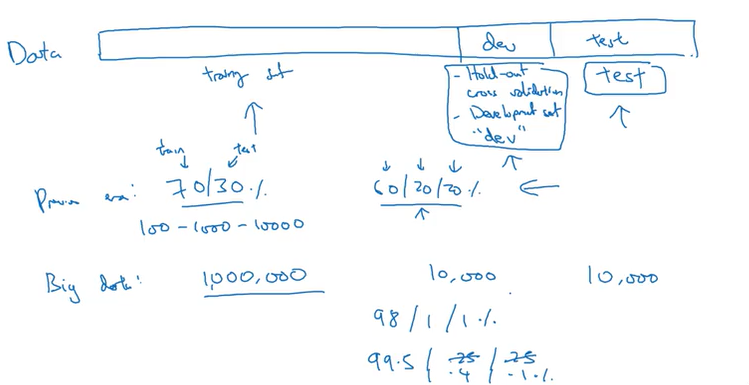 Data
dev
test
training set
- Hold-out
cross validation
- Development set
"dev"
test
train
test
Previous era:
70/30 %
60/20/20 %
100 - 1000 - 10000
Big data:
1,000,000
10,000
10,000
98 / 1 / 1 %
99.5 / 25 / 25
.4 .1 %